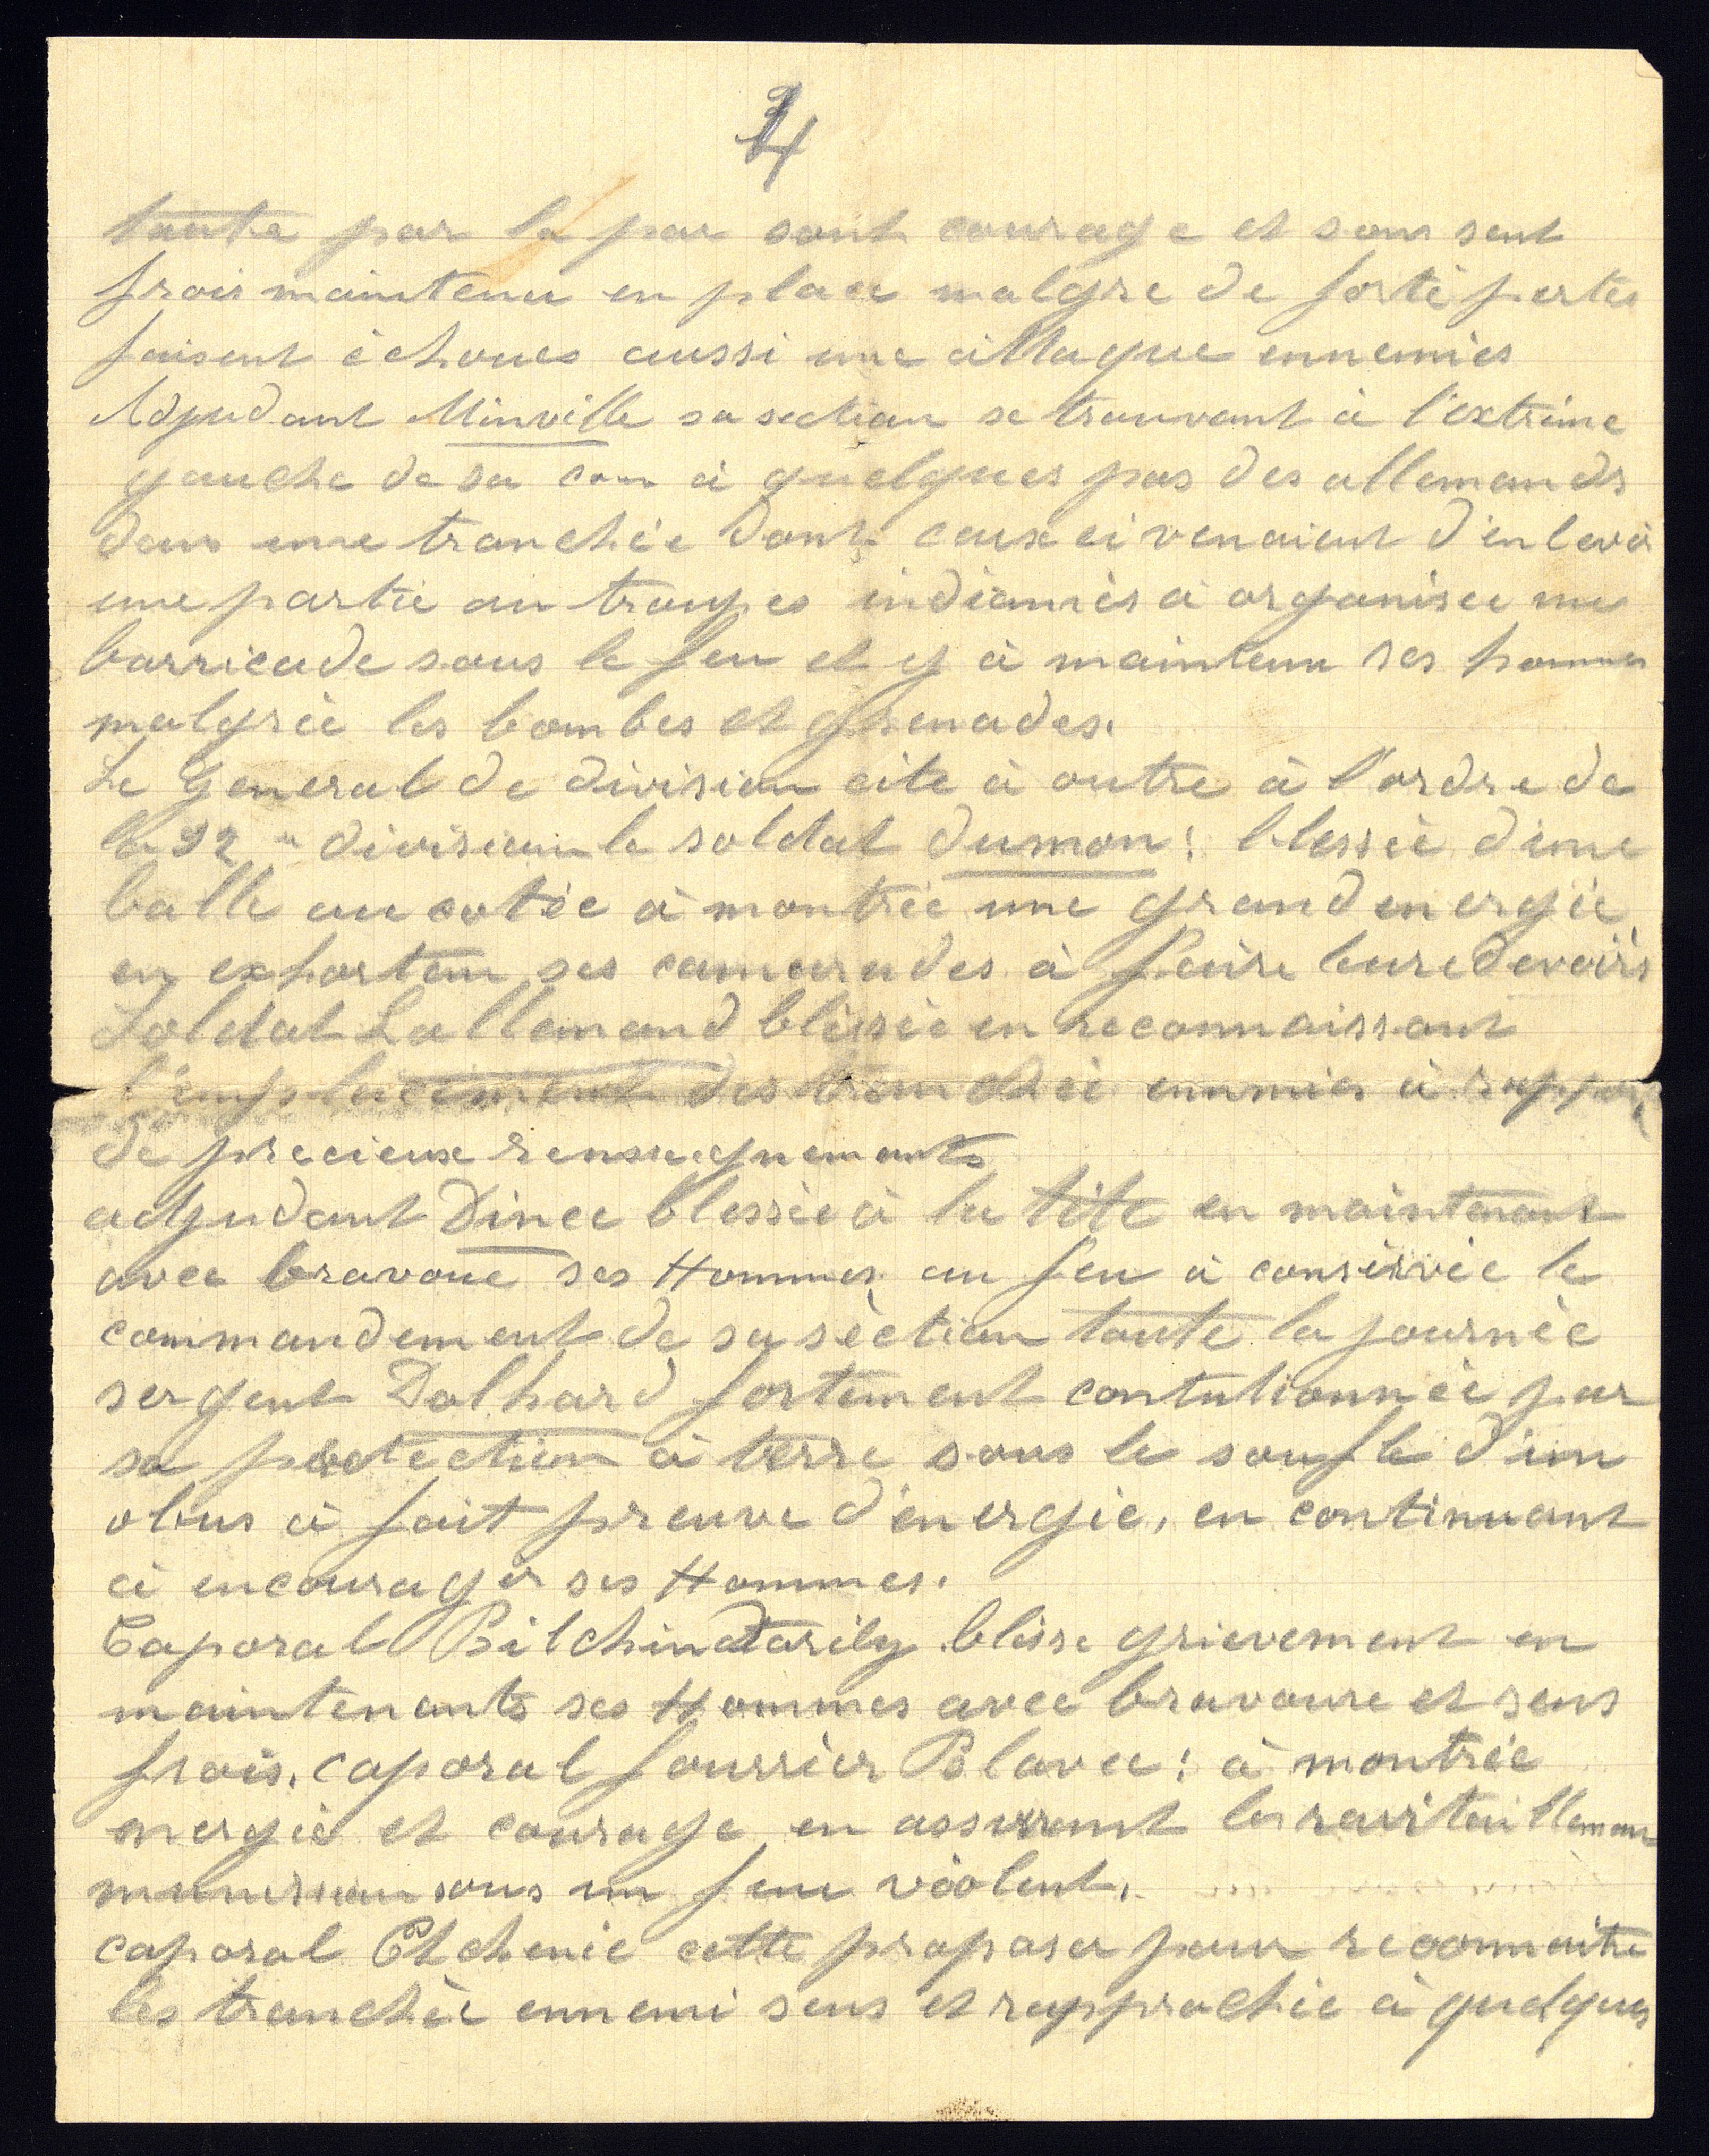 4
toute par la par sont courage et sons sent
frois maintenu en place malgre de forte pertes
faisent èchoues aussi une attaque ennemies
Adjudant Minville sa section se trouvant à l'extrème
gauche de sa com à quelques pas des allemands
dans une tranchèe dont ceux ci venaient d'enlevè
une partie au troupes indiennès à organisee une
barricade sous le feu et y à maintenu ses hommes
malgrèe les bombes et grenades.
Le General de division cite à outre à l'ordre de
la 92 e division le soldat dumon : blessèe d'une
balle au cotèe à montrèe une grand energie
en exhortan ses camarades à faire leure devoirs
Soldat Lallemand blessèe en reconnaissant
l'emplacement des tranchèe ennmies à
de precieux renseignements
adjudant Dince blessèe à la tête en maintenant
avec bravoue ses Hommes au feu à consèrvèe le
commandement de sa sèction toute la journèe
sergent Dalhard fortement contutionnèe par
sa protection à terre sous le soufle d'un
obus à fait preuve d'energie, en continuant
à encouragèr ses Hommes.
Caporal blesse grievement en
maintenants ses Hommes avec bravoure et sens
frois, caporal fourrièr Blavee : à montrèe
energie et courage en assurant les ravitaillement
munission sous un feue vèolent.
caporal Etchenic cette proposer pour reconnaitre
les tranchèe ennemi sens et rapprochèe à quelques